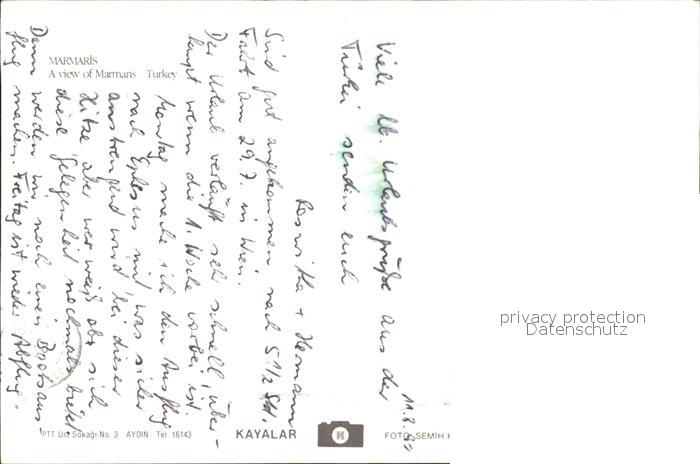 MARMARİS
A view of Marmaris - Turkey
Viele lb. Urlaubsgrüße aus der
Türkei senden euch
Roswitha + Hermann
Sind gut angekommen nach 5 1/2 Std.
Fahrt am 29.7. in Wien.
Der Urlaub verläuft sehr schnell, über-
haupt wenn die 1. Woche vorbei ist.
Montag mache ich den Ausflug
nach Ephesus mit, was sicher
anstrengend wird bei dieser
Hitze aber wer weiß ob sich
diese Gelegenheit nochmals bietet
Dann werden wir noch einen Bootsaus-
flug machen. Freitag ist wieder Abflug.
11.8.
privacy protection
Datenschutz
PTT Üst Sokağı No. 3 AYDIN Tel. 16143
KAYALAR
H
FOTO: SEMİH